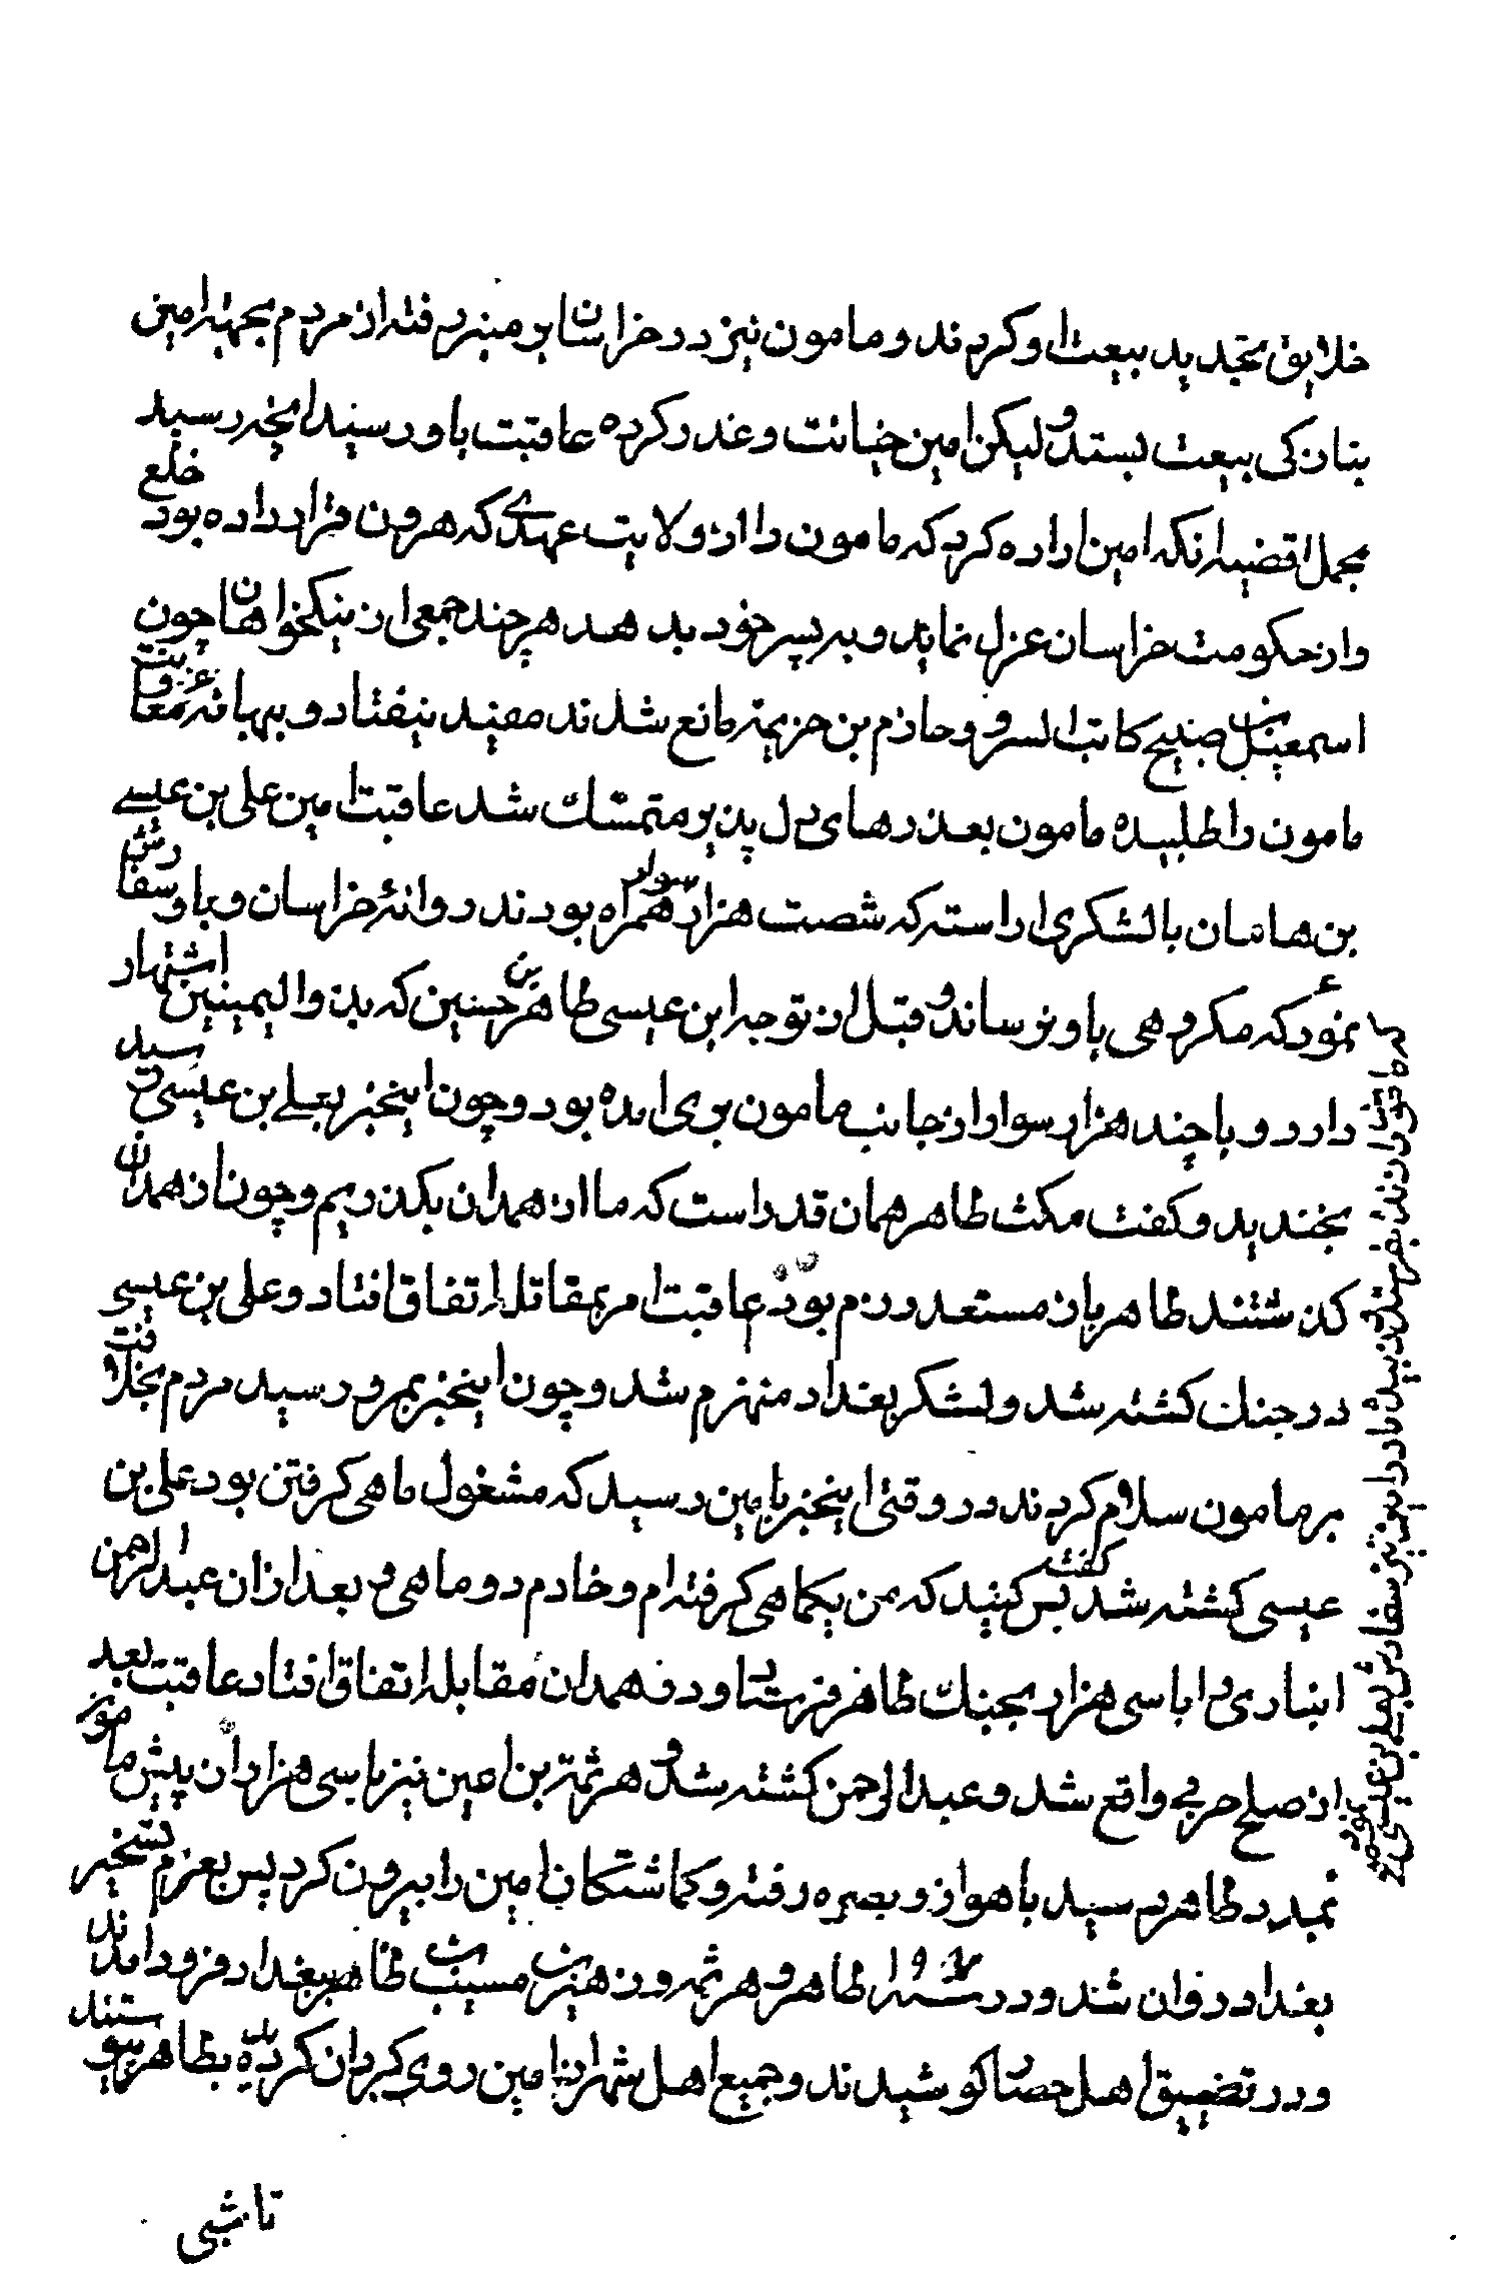 خلایق تجدید بیعت او کردند و مامون نیز در خراسان بر منبر رفته از مردم بجهة امین
بتازکی بیعت بستد و لیکن امین خیانت و غدر کرده عاقبت باو رسید انچه رسید
مجمل قضیه انکه امین اراده کرد که مامون را از ولایت عهدی که هرون قرار داده بود خلع
و از حکومت خراسان عزل نماید و به پسر خود بدهد هر چند جمعی از نیکخواهان چون
اسمعیل بن صبیح کاتب السر و حازم بن خزیمة مانع شدند مفید نیفتاد و ببهانه معاونت
مامون را طلبیده مامون بعذرهای دل پذیر متمسک شد عاقبت امین علی بن عیسی
بن هامان با لشکری اراسته که شصت هزار سوار همراه بودند روانه خراسان و باو سفارش
نمود که مکروهی باو نرساند و قبل از توجه ابن عیسی طاهر بن حسین که بذو الیمینین اشتهار
دارد و با چند هزار سوار از جانب مامون بری امده بود و چون اینخبر بعلی بن عیسی رسید
بخندید و کفت مکث طاهر همان قدر است که ما از همدان بکذریم و چون از همدان
کذشتند طاهر باز مستعد رزم بود عاقبت امر بمقاتله اتفاق افتاد و علی بن عیسی
در جنک کشته شد و لشکر بغداد منهزم شد و چون اینخبر بمرو رسید مردم بخلافت
بر مامون سلام کردند و در وقتی اینخبر بامین رسید که مشغول ماهی کرفتن بود علی بن
عیسی کشته شد کفت بس کنید که من یکماهی کرفته ام و خادم دو ماهی و بعد ازان عبد الرحمن
انباری را با سی هزار بجنک طاهر فرستاد و در همدان مقابله اتفاق افتاد عاقبت بعد
از صلح حربی واقع شد و عبد الرحمن کشته شد و هرثمة بن اعین نیز با سی هزار از پیش مامون
بمدد طاهر رسید باهواز و بصره رفته و کماشتکان امین را بیرون کرد پس بعزم تسخیر
بغداد روان شد و در سنه طاهر و هرثمه و زهیر بن مسیب بظاهر بغداد فرود امدند
و در تضییق اهل حصار کوشیدند و جمیع اهل شهر از امین روی کردان کردیده بطاهر پیوستند
تا شبی